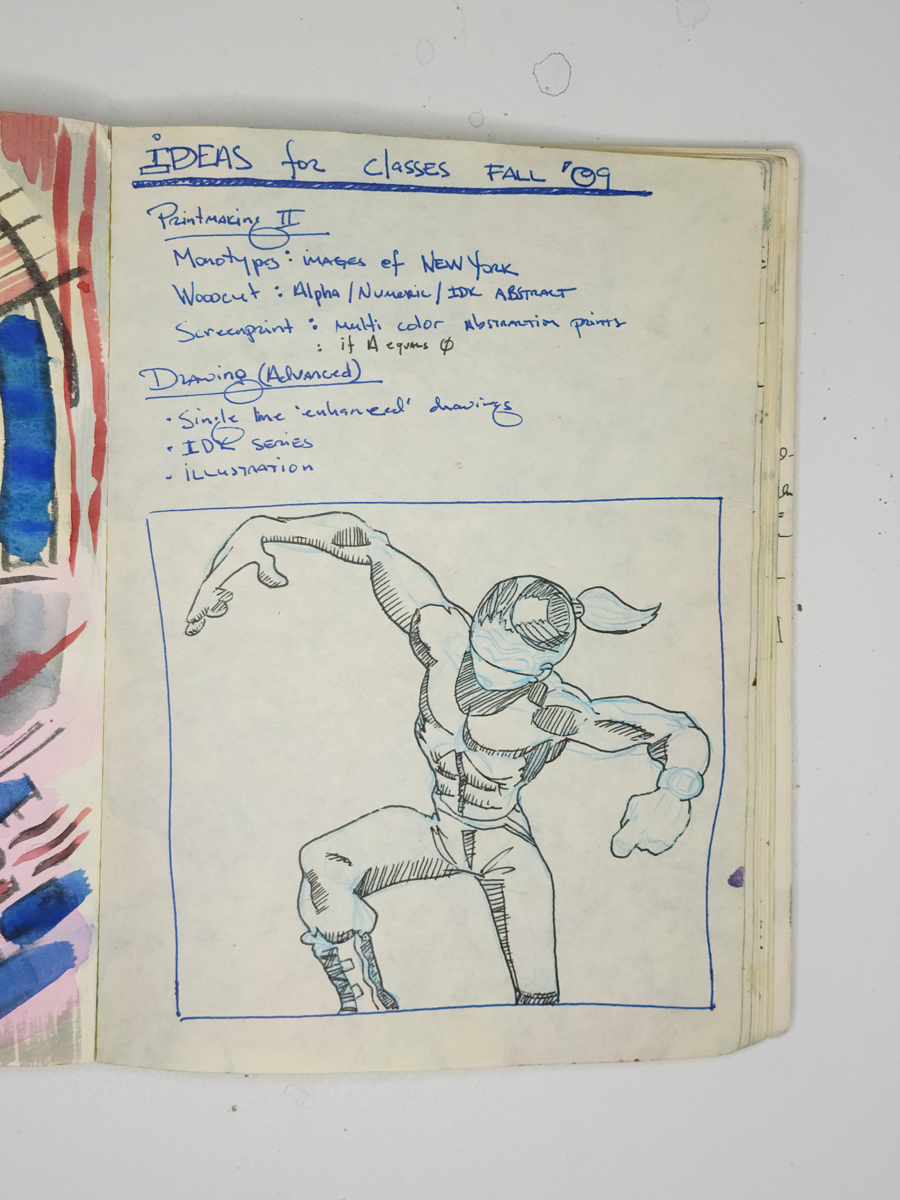 IDEAS for Classes FALL '09
Printmaking II
Monotypes : images of NEW YORK
Woodcut : Alpha / Numeric / IDK ABSTRACT
Screenprint : Multi color Abstraction prints
: if A equals ϕ
Drawing (Advanced)
· Single line 'enhanced' drawings
· IDK SERIES
· ILLUSTRATION